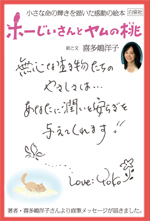 小さな命の輝きを描いた感動の絵本
白泉社
ホーじいさんとヤムの桃
絵と文 喜多嶋洋子
無心な生き物たちの
やさしさは…
あなたに潤いと安らぎを
与えてくれます!!
Love: Yoko
著者・喜多嶋洋子さんより直筆メッセージが届きました。